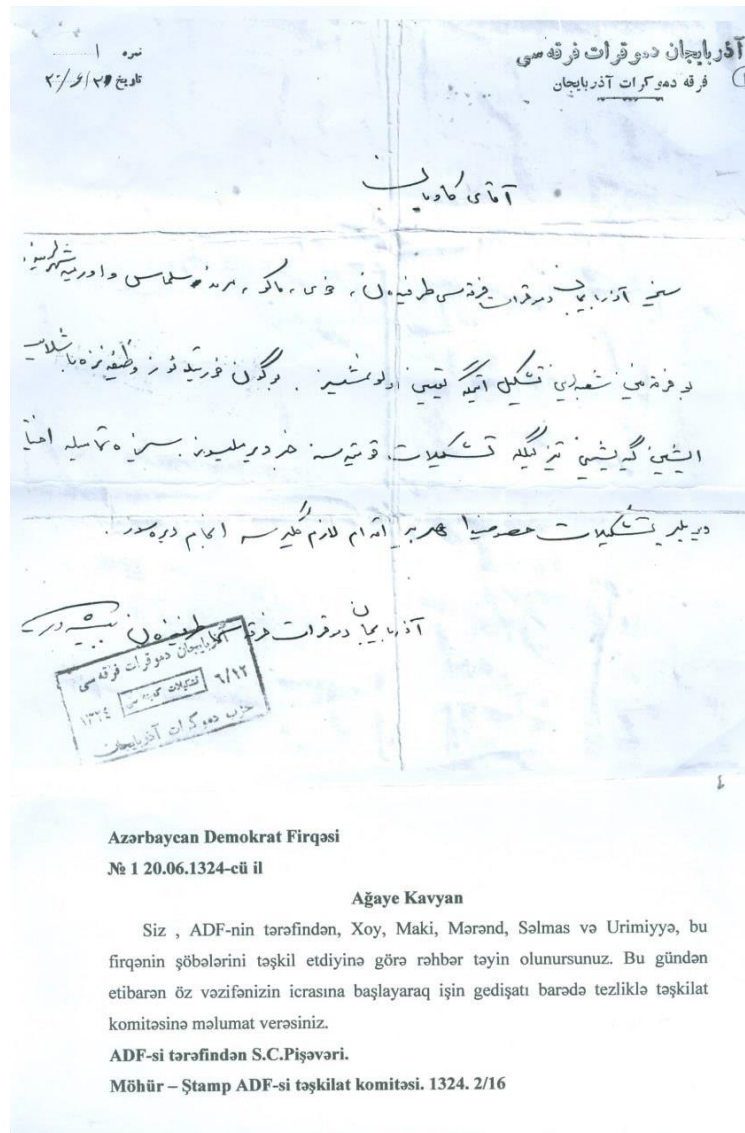 آذربایجان دموقرات فرقه سی
فرقه دموکرات آذربایجان
نمره ۱
تاریخ
آقای کاویان
سیز آذربایجان دموقرات فرقه سی طرفیندن، خوی، ماکو، مرند، سلماس و اورمیه
بو فرقه نین شعبه لرین تشکیل اتمگه تعیین اولونمشسیز. بو گون
ایشین گیدیشیندن تزلیگله تشکیلات
تشکیلات خصوصیندا هر بیر اقدام لازم گلیرسه انجام
آذربایجان دموقرات فرقه سی طرفیندن پیشه وری
آذربایجان دموقرات فرقه سی
تشکیلات کمیته سی
۶/۱۲
۱۳۲٤
حزب دموکرات آذربایجان
Azərbaycan Demokrat Firqəsi
№ 1 20.06.1324-cü il
Ağaye Kavyan
Siz , ADF-nin tərəfindən, Xoy, Maki, Mərənd, Səlmas və Urimiyyə, bu
firqənin şöbələrini təşkil etdiyinə görə rəhbər təyin olunursunuz. Bu gündən
etibarən öz vəzifənizin icrasına başlayaraq işin gedişatı barədə tezliklə təşkilat
komitəsinə məlumat verəsiniz.
ADF-si tərəfindən S.C.Pişəvəri.
Möhür – Ştamp ADF-si təşkilat komitəsi. 1324. 2/16